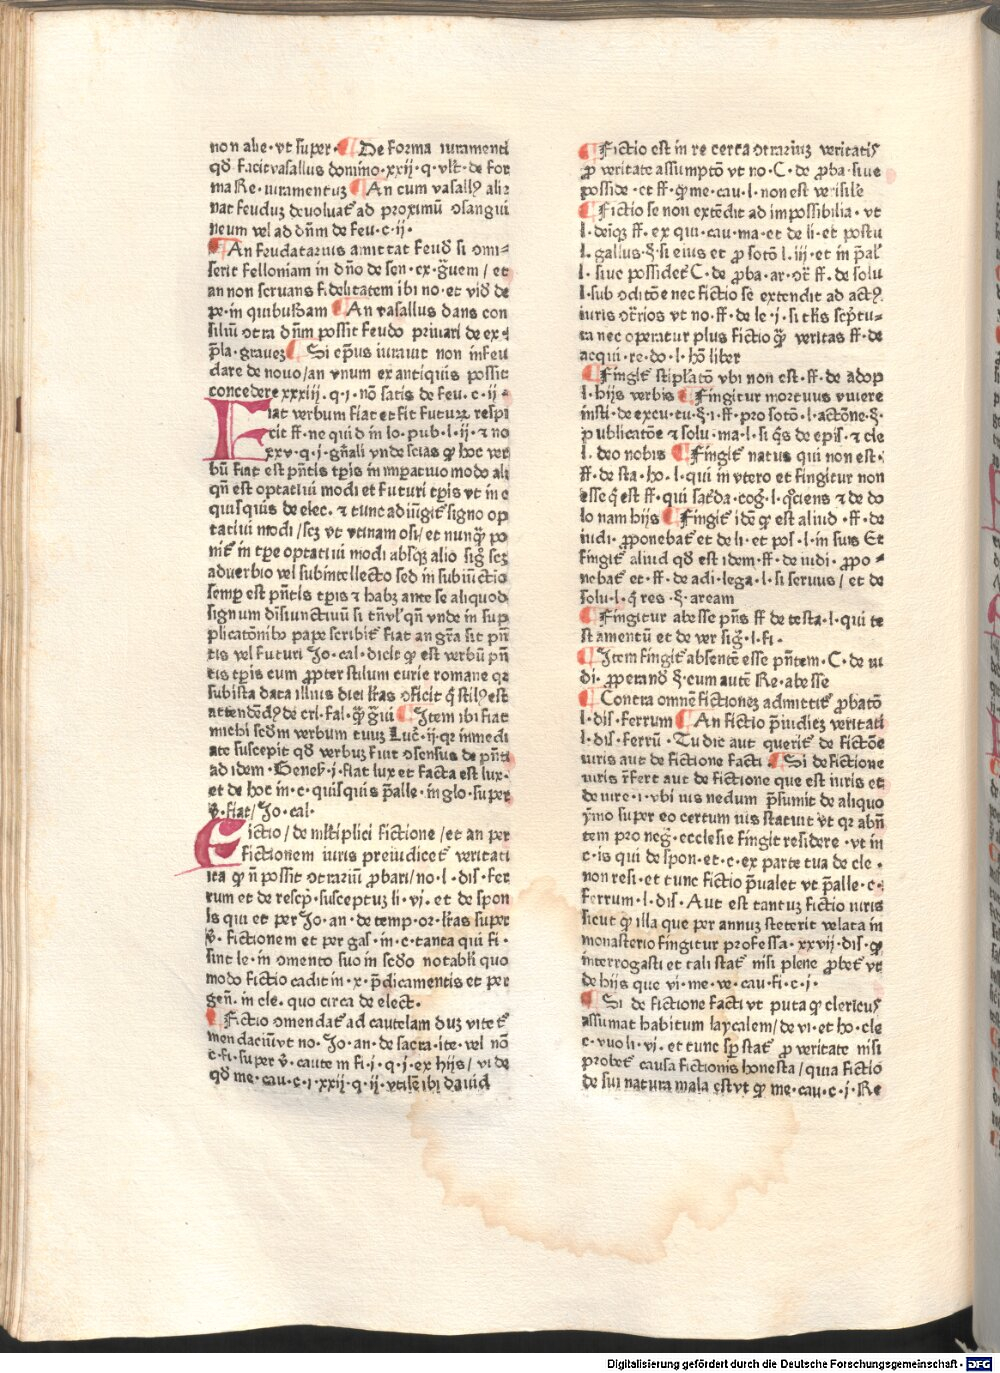 non alie·vt super· ¶ De forma iuramenti
qđ facit vasallus domino·xxij·q·vlt̄·de for
ma Re·iuramentuȝ ¶ An cum vasallꝰ alie
nat feuduȝ deuoluat̄ ad proximū ↄsangui
neum vel ad dn̄m de feu·c·ij·
¶ An feudatarius amittat feudū si omi⸗
serit felloniam in dn̄o de sen·ex·g̃uem/et
an non seruans fidelitatem ibi no·et vid̄ de
pe·in quibusdam ¶ An vasallus dans con
siliū ↄtra dn̄m possit feudo priuari de ex·
p̄la·graueȝ ¶ Si ep̄us iurauit non infeu
dare de nouo/an vnum ex antiquis possit
concedere xxxiii·q·i·nō satis de feu·c·ij·
Fiat verbum fiat et fit futuꝝ respi
cit ff·ne quid in lo·pub·l·ij·⁊ no
xxv·q·j·gn̄ali vnde scias ꝙ hoc ver
bū fiat est pn̄tis tp̄is in imperatiuo modo ali
qn̄ est optatiui modi et futuri tp̄is vt in c
quisquis de elec·⁊ tunc adiūgit̄ signo op
tatiui modi/scȝ vt vtinam osi/et nunq̄ꝫ po
nit̄ in tp̄e optatiui modi absqȝ alio sig̃ scȝ
aduerbio vel subintellecto sed in subiūctio
semꝑ est pn̄tis tp̄is ⁊ habȝ ante se aliquod
signum disiunctiuū si tn̄ vl̓ qn̄ vnde in sup
plicatōnibꝰ pape scribit̄ fiat an gr̄a sit pn̄
tis vel futuri Jo·cal·dicit ꝙ est verbū pn̄
tis tp̄is cum ꝓpter stilum curie romane qꝛ
subista data illius diei lr̄as ↄficit q̄ stilꝰ est
attendēdꝰ de cri·fal·q̄ꝫ g̃ui ¶ Item ibi fiat
michi scđm verbum tuuȝ Luc̄·ij·qꝛ inmedi
ate suscepit qđ verbuȝ fuit ↄsensus de pn̄ti
ad idem·Genes̄·i·fiat lux et facta est lux·
et de hoc in·c·quisquis p̄alle·in glo·super
v̄·fiat/Jo·cal·
Fictio/de ml̓tiplici fictione/et an per
fictionem iuris preiudicet̄ veritati
ita ꝙ n̄ possit ↄtrariū ꝓbari/no·l·dis·fer
rum et de rescp̄·susceptuȝ li·vj·et de spon
ls qui et per Jo·an·de temp·or·lr̄as super
v̄·fictionem et per gas·in·c·tanta qui fi·
sint le·in ↄmento suo in scđo notabl̓i quo
modo fictio cadit in·x·p̄dicamentis et per
gen̄·in cle·quo circa de elect·
¶ Fictio ↄmendat̄ ad cautelam duȝ vitet̄
mendaciū vt no·Jo·an·de sacra·ite·vel nō
c·fi·super v̄·cautem fi·j·q·j·ex hijs/vi de
qđ me·cau·c·i·xxij·q·ij·vtile ibi dauid
¶ Fictio est in re certa ↄtrariuȝ veritatis
ꝓ veritate assumptō vt no·C·de ꝓba·siue
posside·et ff·q̄ me·cau·l·non est verisile
¶ Fictio se non extēdit ad impossibilia·vt
l·deiqȝ ff·ex qui·cau·ma·et de li·et postu
l·gallus·§·si eius et ꝓ sotō l·iij·et in p̄al
l·siue possidet̄ C·de ꝓba·ar·ↄr̄ ff·de solu
l·sub ↄditōe nec fictio se extendit ad actꝰ
iuris ↄtr̄ios vt no·ff·de le·j·si tl̓is sc̄ptu⸗
ra nec operatur plus fictio q̄ꝫ veritas ff·de
acqui·re·do·l·hō liber
¶ Fingit̄ stipl̓atō vbi non est·ff·de adop
l·hijs verbis ¶ Fingitur mortuus viuere
insti·de excu·tu·§·i·ff·pro sotō·l·actōne·§·
publicatōe ⁊ solu·ma·l·si q̄s de epis·⁊ cle
l·deo nobis ¶ Fingit̄ natus qui non est·
ff·de sta·ho·l·qui in vtero et fingitur non
esse q̄ est ff·qui satis̄da·cog̃·l·q̄ciens ⁊ de do
lo nam hijs ¶ Fingit̄ idē ꝙ est aliud·ff·de
iudi·ꝓponebat̄ et de li·et pos·l·in suis Et
fingit̄ aliud qđ est idem·ff·de iudi·ꝓpo⸗
nebat̄ et·ff·de adi·lega·l·si seruus/et de
solu·l·q̄ res·§·aream
¶ Fingitur abesse pn̄s ff de testa·l·qui te
stamentū et de ver sig̃·l·fi·
¶ Item fingit̄ absentē esse pn̄tem·C·de iu
di·ꝓperand §·cum autē Re·abesse
¶ Contra omnē fictioneȝ admittit̄ ꝓbatō
l·dis·ferrum ¶ An fictio p̄iudicȝ veritati
l·dis·ferrū·Tu dic aut querit̄ de fictōe
iuris aut de fictione facti·¶ Si de fictione
iuris r̄fert aut de fictione que est iuris et
de iure·i·vbi ius nedum p̄sumit de aliquo
ymo super eo certum ius statuit vt qꝛ abn̄
tem pro neg̃·ecclesie fingit residere·vt in
c·is qui de spon·et·c·ex parte tua de cle·
non resi·et tunc fictio p̄ualet vt p̄alle·c·
ferrum·l·dis·Aut est tantuȝ fictio iuris
sicut ꝙ illa que per annuȝ steterit velata in
monasterio fingitur professa·xxvij·dis·ꝙ
interrogasti et tali stat̄ nisi plene ꝓbet̄ vt
de hijs que vi·me·ve·cau·fi·c·i·
¶ Si de fictione facti vt puta ꝙ clericus
assumat habitum laycalem/de vi·et ho·cle
c·vuo li·vj·et tunc sp̄ stat̄ ꝓ veritate nisi
probet̄ causa fictionis honesta/quia fictio
de sui natura mala est vt ꝙ me·cau·c·j·Re
Digitalisierung gefördert durch die Deutsche Forschungsgemeinschaft - DFG